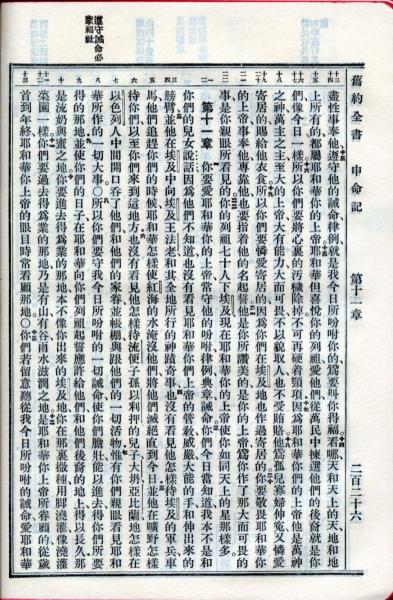 舊約全書 申命記 第十一章 二百二十六
遵守誡命必
蒙福祉
盡性事奉他遵守他的誡命律例就是我今日所吩咐你的爲要叫你得福看哪天和天上的天地和地
上所有的都屬耶和華你的上帝耶和華但喜悅你的列祖愛他們從萬民中揀選他們的後裔就是你
們像今日一樣所以你們要將心裏的污穢除掉不可再硬着頸項因爲耶和華你們的上帝他是萬神
之神萬主之主至大的上帝大有能力大而可畏不以貌取人也不受賄賂他爲孤兒寡婦伸冤又憐愛
寄居的賜給他衣食所以你們要憐愛寄居的因爲你們在埃及地也作過寄居的你要敬畏耶和華你
的上帝事奉他專靠他也要指着他的名起誓他是你所讚美的是你的上帝爲你作了那大而可畏的
事是你親眼所看見的你的列祖七十人下埃及現在耶和華你的上帝使你如同天上的星那樣多
第十一章 你要愛耶和華你的上帝常守他的吩咐律例典章誡命你們今日當知道我本不是和
你們的兒女說話因爲他們不知道也沒有看見耶和華你們上帝的管教威嚴大能的手和伸出來的
膀臂並他在埃及中向埃及王法老和其全地所行的神蹟奇事也沒有看見他怎樣待埃及的軍兵車
馬他們追趕你們的時候耶和華怎樣使紅海的水淹沒他們將他們滅絕直到今日並他在曠野怎樣
待你們以至你們來到這地方也沒有看見他怎樣待流便子孫以利押的兒子大坍亞比蘭地怎樣在
以色列人中間開口吞了他們和他們的家眷並帳棚與跟他們的一切活物惟有你們親眼看見耶和
華所作的一切大事○所以你們要守我今日所吩咐的一切誡命使你們膽壯能以進去得你們所要
得的那地並使你們的日子在耶和華向你們列祖起誓應許給他們和他們後裔的地上得以長久那
是流奶與蜜之地你要進去得爲業的那地本不像你出來的埃及地你在那裏撒種用脚澆灌像澆灌
菜園一樣你們要過去得爲業的那地乃是有山有谷雨水滋潤之地是耶和華你上帝所眷顧的從歲
首到年終耶和華你上帝的眼目時常看顧那地○你們若留意聽從我今日所吩咐的誡命愛耶和華